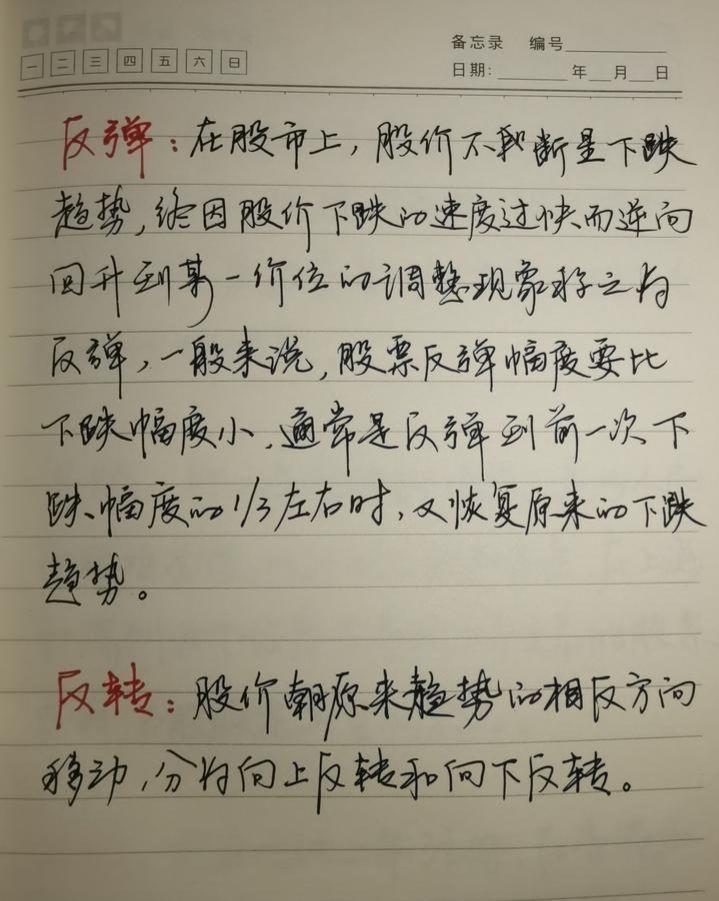 一 二 三 四 五 六 日
备忘录 编号
日期: 年 月 日
反弹：在股市上，股价不断呈下跌
趋势，终因股价下跌的速度过快而逆向
回升到某一价位的调整现象称之为
反弹，一般来说，股票反弹幅度要比
下跌幅度小，通常是反弹到前一次下
跌幅度的1/3左右时，又恢复原来的下跌
趋势。
反转：股价朝原来趋势的相反方向
移动，分为向上反转和向下反转。